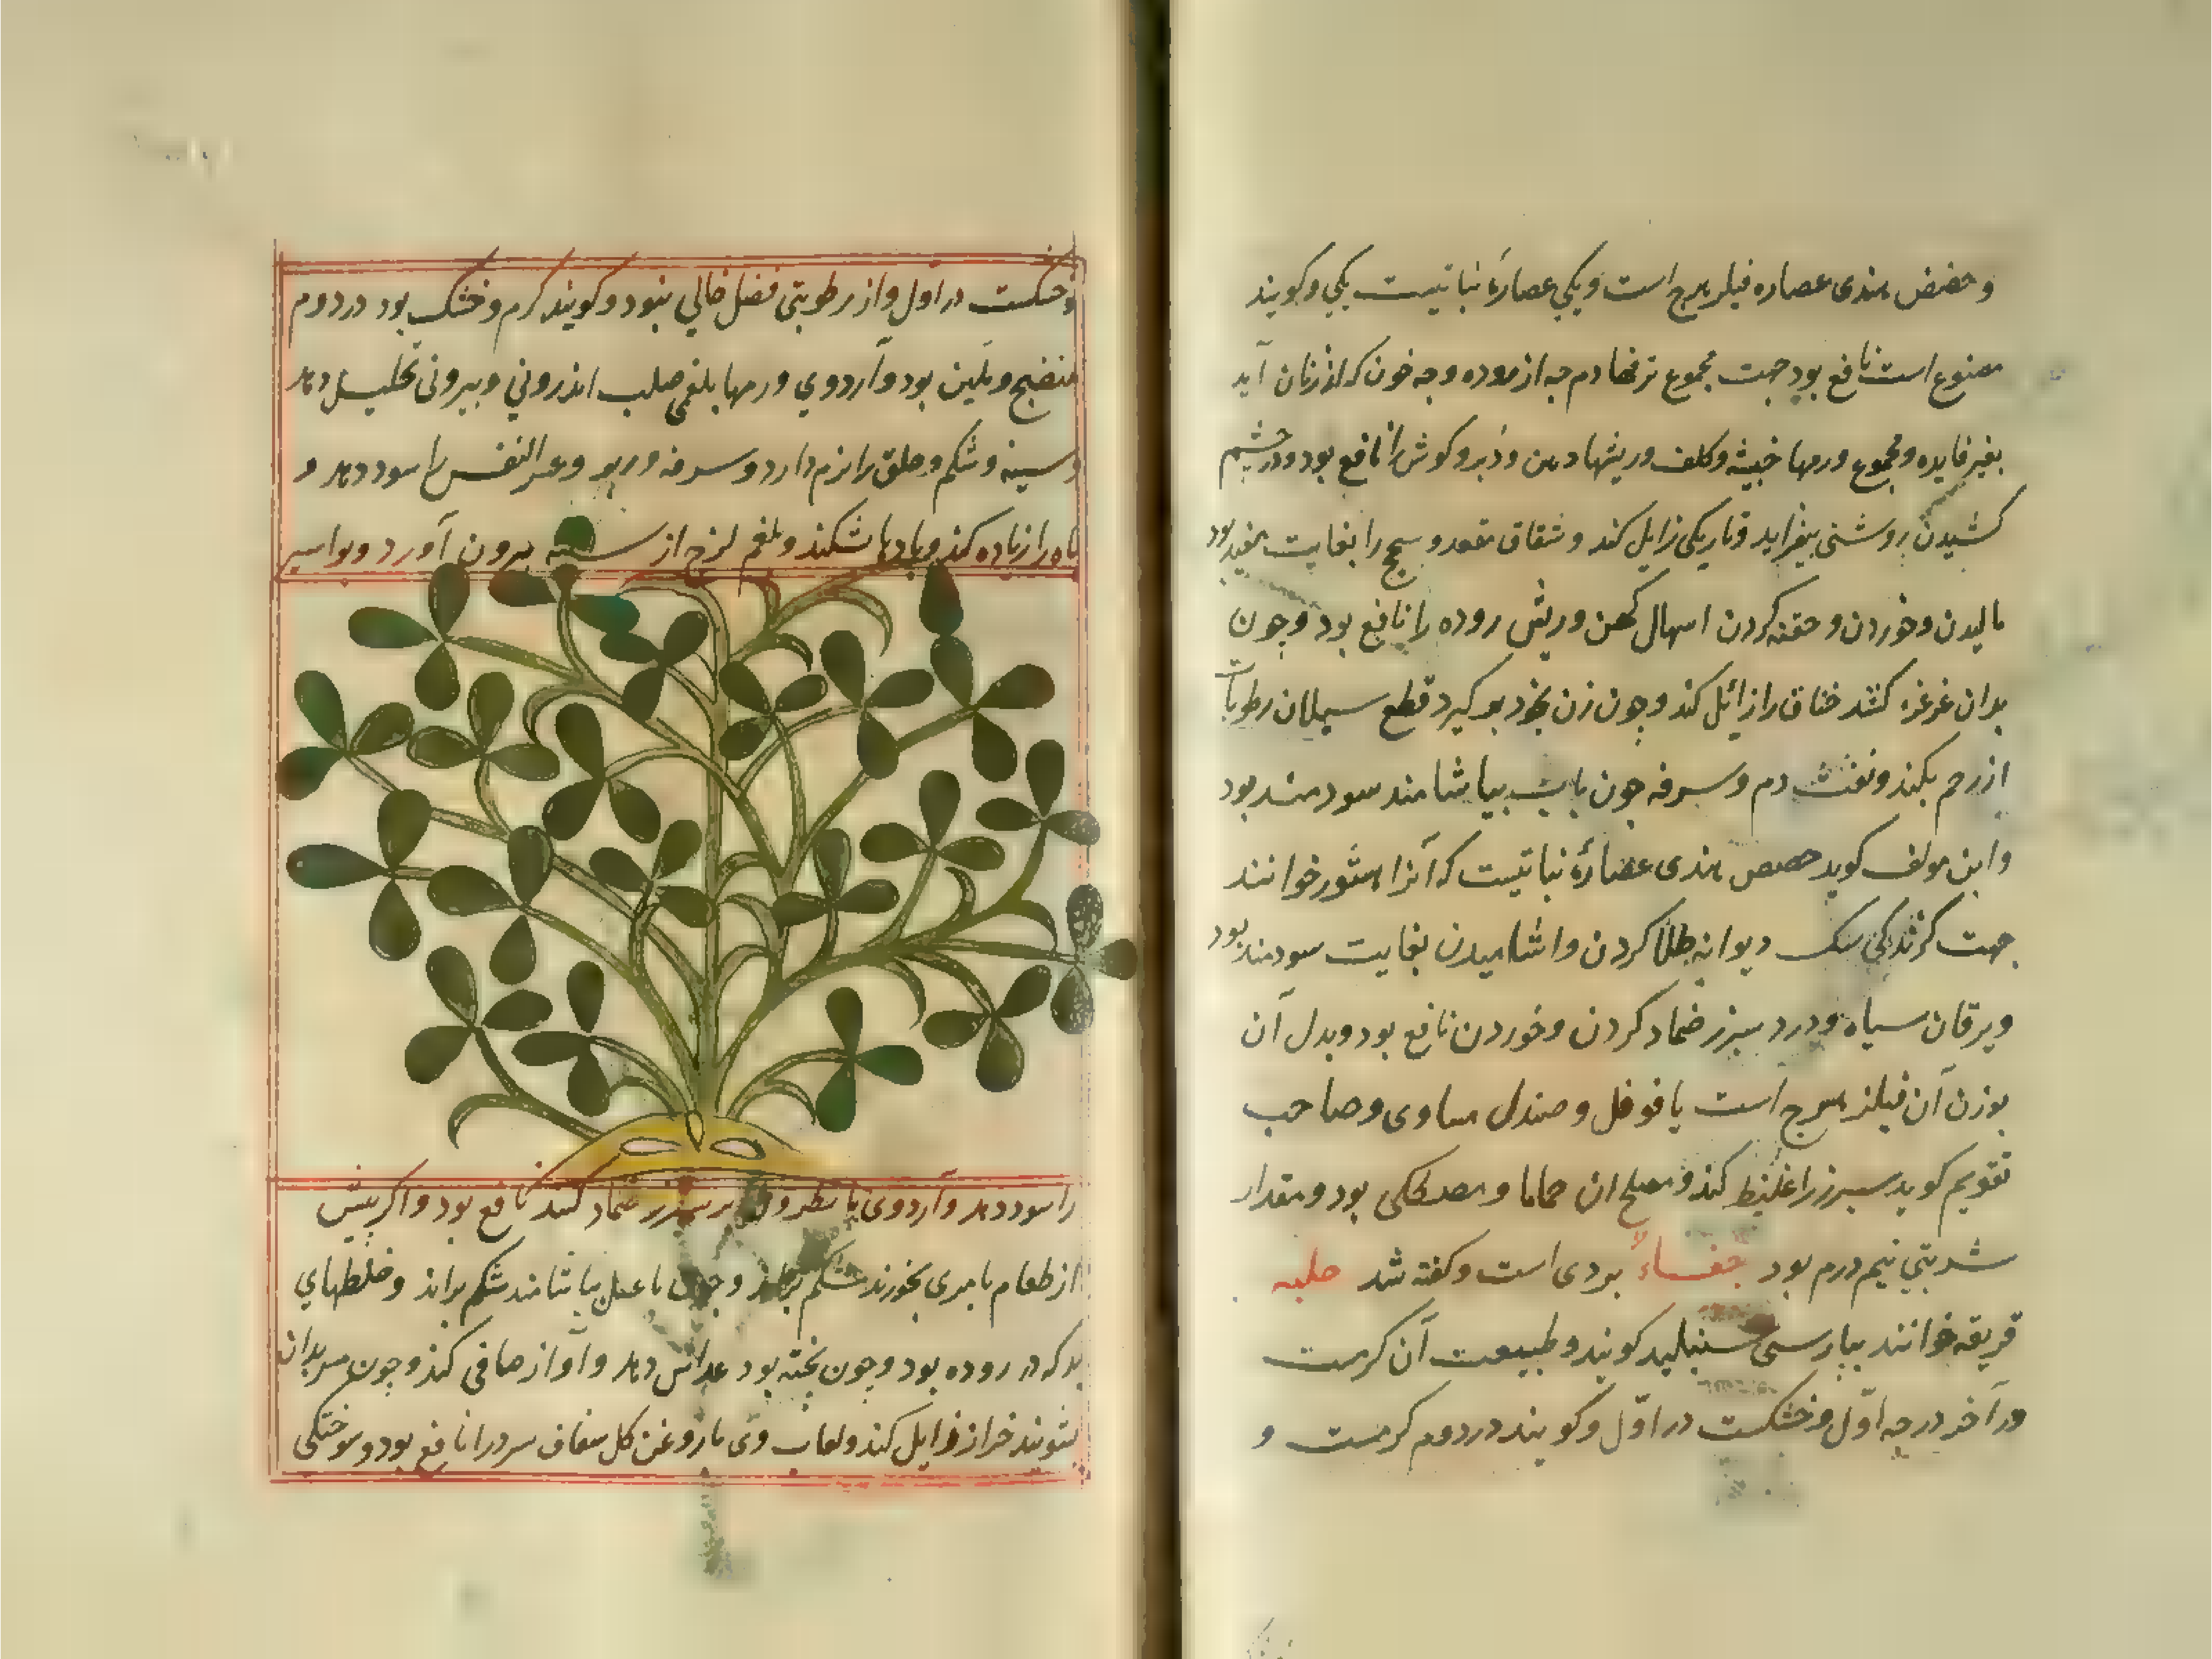 و حضض هندی عصاره فیلزهرج است و یکی عصارهٔ نباتیست یکی و کویند
مصنوع است نافع بود جهت مجموع نزفها دم جه از روده و جه خون که از زنان آید
بغیر فایده و مجموع ورمها خبیثه و کلف و ریشها دهن و دبر و کوش را نافع بود و در چشم
کشیدن روشنی بیفزاید و تاریکی زایل کند و شقاق مقعد و سحج را بغایت مفید بود
مالیدن و خوردن و حقنه کردن اسهال کهن و ریش روده را نافع بود و جون
بدان غرغره کنند خناق را زائل کند و جون زن بخود بر کیرد قطع سیلان رطوبات
از رحم بکند و نفث دم و سرفه جون باب بیاشامند سودمند بود
و ابن مولف کوید حضض هندی عصارهٔ نباتیست که آنرا خوانند
جهت کزندکی سک دیوانه طلا کردن و اشامیدن بغایت سودمند بود
و یرقان سیاه و درد سبرز ضماد کردن و خوردن نافع بود و بدل آن
بوزن آن فیلزهرج است یا فوفل و صندل مساوی و صاحب
تقویم کوید سبرز را غلیظ کند و مصلح ان حماما و مصطکی بود و مقدار
شربتی نیم درم بود حفساء بردی است و کفته شد حلبه
فریقه خوانند ببارسی شنبلید کویند و طبیعت آن کرمست
در آخر درجه اول و خشکست در اول و کویند در دوم کرمست و
و خشکست در اول و از رطوبتی فضل خالی نبود و کویند کرم و خشک بود در دوم
منضج و ملین بود و آرد وی ورمها بلغمی صلب اندرونی و بیرونی تحلیل دهد
و سینه و شکم و حلق را نرم دارد و سرفه و ربو و عسر النفس را سود دهد و
باه را زیاده کند و بادها شکند و بلغم لزج از سینه بیرون آورد و بواسیر
را سود دهد و آرد وی با نطرون بر سبرز ضماد کنند نافع بود و اکر بیش
از طعام با مری بخورند شکم براند و جون با عسل بیاشامند شکم براند و خلطهای
بد که در روده بود و جون بخته بود دهد و آواز صافی کند و جون سر بدان
بشویند خزاز زایل کند و لعاب وی با روغن کل شقاق سرد را نافع بود و سوختکی